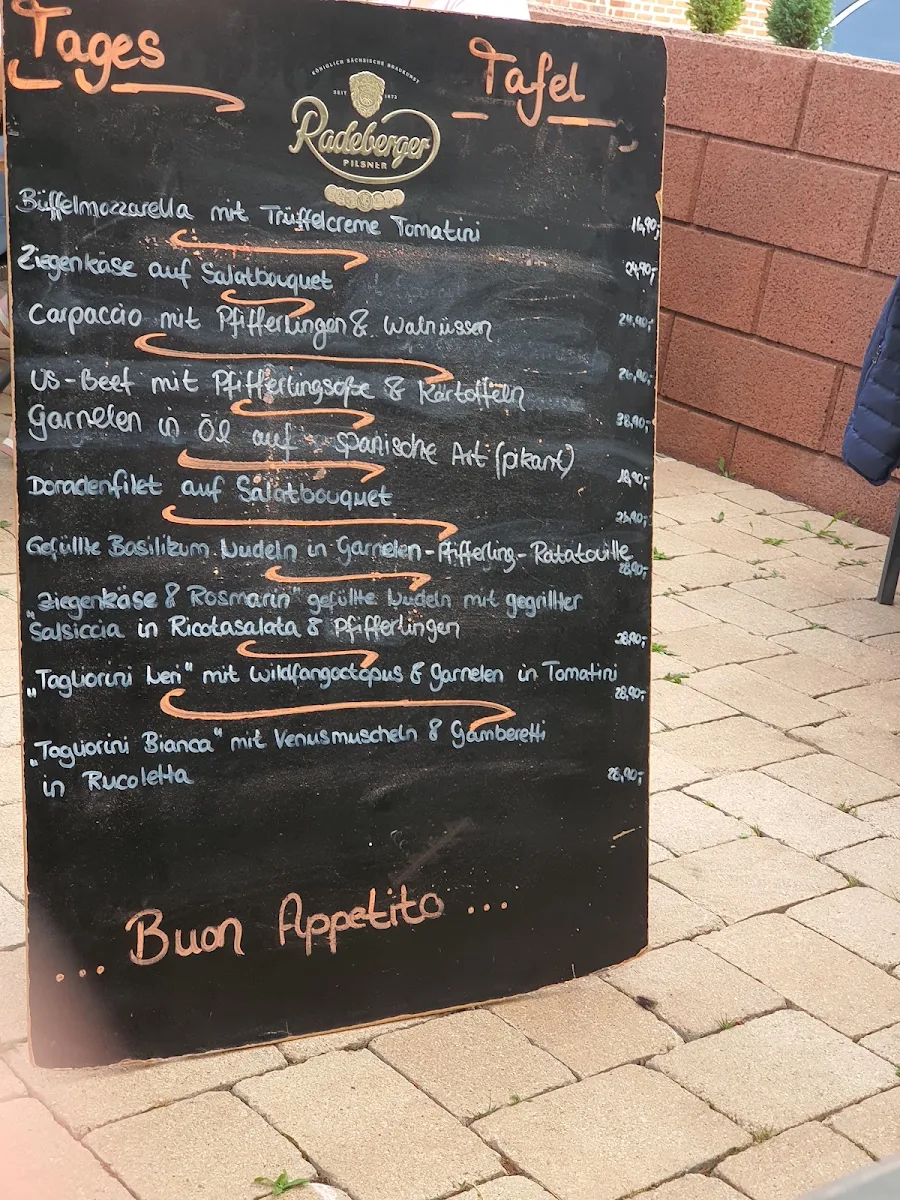 Tages Tafel
KÖNIGLICH SÄCHSISCHE BRAUKUNST
SEIT 1872
Radeberger
PILSNER
Büffelmozzarella mit Trüffelcreme Tomatini
Ziegenkäse auf Salatbouquet
Carpaccio mit Pfifferlingen & Walnüssen 24,90,-
US-Beef mit Pfifferlingsoße & Kartoffeln 26,90,-
Garnelen in Öl auf spanische Art (pikant) 38,90,-
18,90,-
Doradenfilet auf Salatbouquet
Gefüllte Basilikum Nudeln in Garnelen-Pfifferling-Ratatouille
28,90,-
„Ziegenkäse & Rosmarin" gefüllte Nudeln mit gegrillter
Salsiccia in Ricotasalata & Pfifferlingen 28,90,-
„Tagliorini Neri" mit Wildfangoctopus & Garnelen in Tomatini
28,90,-
„Tagliorini Bianca" mit Venusmuscheln & Gamberetti
in Rucoletta 28,90,-
... Buon Appetito ...